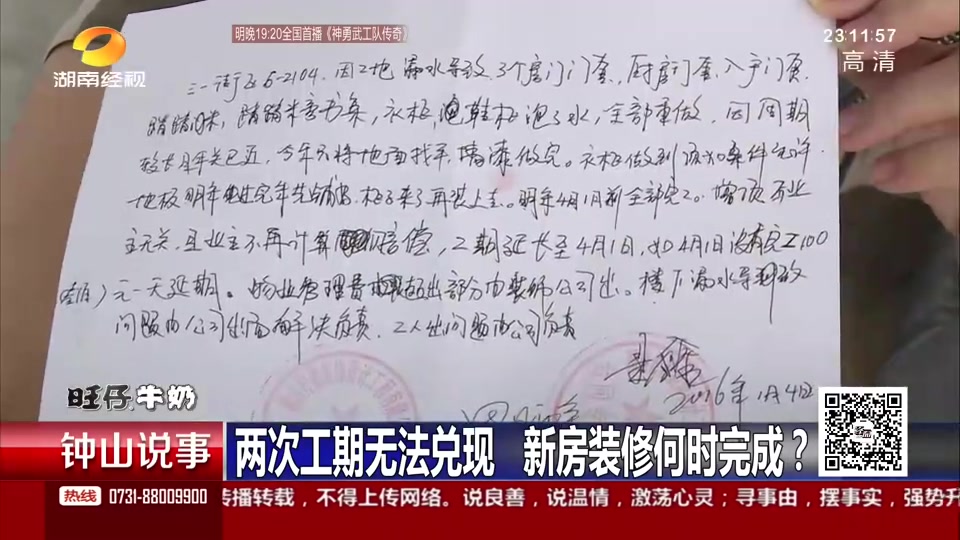 明晚19:20全国首播《神勇武工队传奇》
23:11:57
高清
湖南经视
三一街区6-2104.因工地漏水导致3个房门门套,厨房门套,入户门页
踏踏米书条,衣柜,鞋柜泡了水,全部重做,因周期
较长年关已近,今年只将地面找平墙漆做完。衣柜做到
地板明年 柜子来了再装上去。明年4月1日前全部完工。增项不业
主无关,且业主不再计算赔偿,工期延长至4月1日,如4月1日没有完工100
元一天延期。物业管理费超出部分由装饰公司出。楼下漏水导致
问题由公司出面解决负责.工人出问题由公司负责
2016年 月4日
旺仔牛奶
钟山说事
两次工期无法兑现 新房装修何时完成?
热线 0731-88009900 传播转载,不得上传网络。说良善,说温情,激荡心灵;寻事由,摆事实,强势升